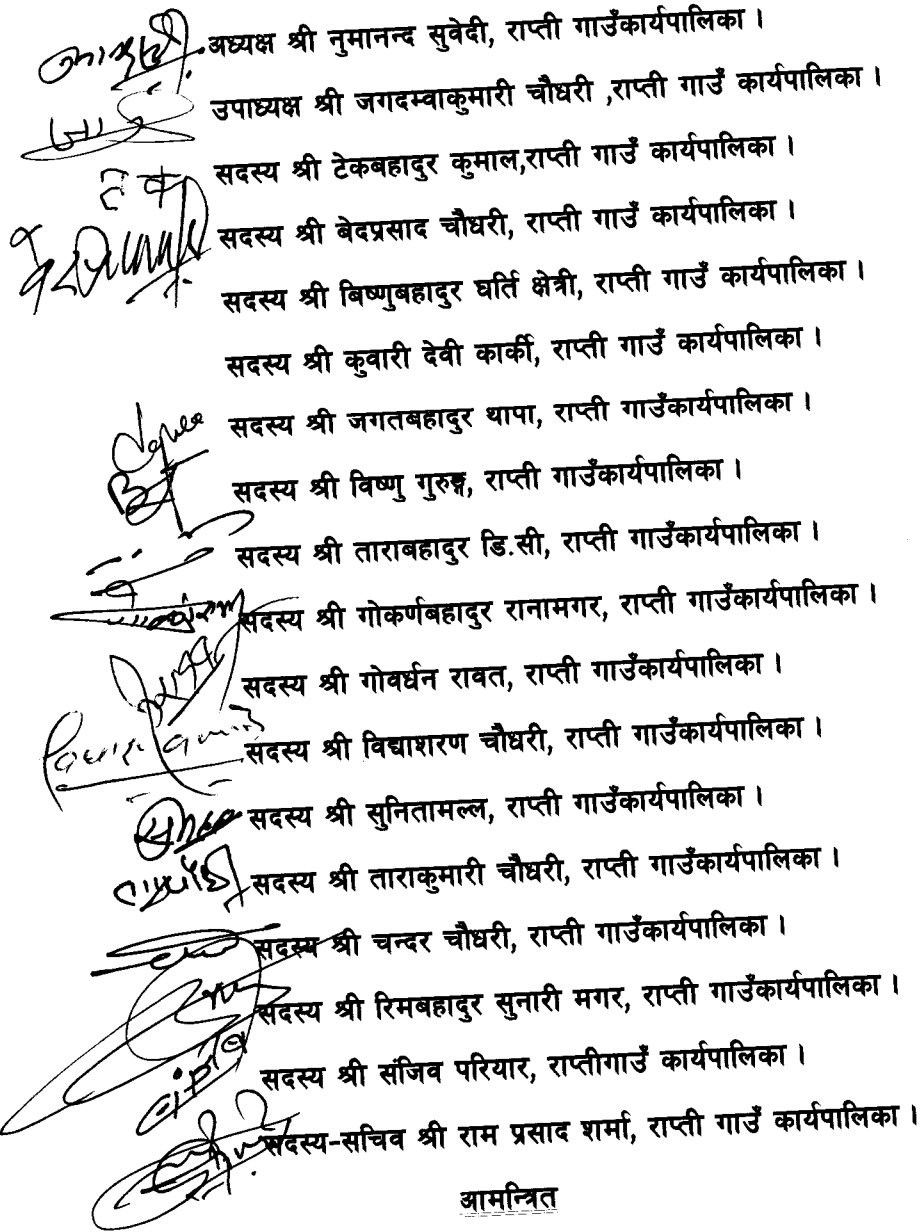 अध्यक्ष श्री नुमानन्द सुवेदी, राप्ती गाउँकार्यपालिका ।
उपाध्यक्ष श्री जगदम्वाकुमारी चौधरी ,राप्ती गाउँ कार्यपालिका ।
सदस्य श्री टेकबहादुर कुमाल,राप्ती गाउँ कार्यपालिका ।
सदस्य श्री बेदप्रसाद चौधरी, राप्ती गाउँ कार्यपालिका ।
सदस्य श्री बिष्णुबहादुर घर्ति क्षेत्री, राप्ती गाउँ कार्यपालिका ।
सदस्य श्री कुवारी देवी कार्की, राप्ती गाउँ कार्यपालिका ।
सदस्य श्री जगतबहादुर थापा, राप्ती गाउँकार्यपालिका ।
सदस्य श्री विष्णु गुरुङ्ग, राप्ती गाउँकार्यपालिका ।
सदस्य श्री ताराबहादुर डि.सी, राप्ती गाउँकार्यपालिका ।
सदस्य श्री गोकर्णबहादुर रानामगर, राप्ती गाउँकार्यपालिका ।
सदस्य श्री गोवर्धन रावत, राप्ती गाउँकार्यपालिका ।
सदस्य श्री विद्याशरण चौधरी, राप्ती गाउँकार्यपालिका ।
सदस्य श्री सुनितामल्ल, राप्ती गाउँकार्यपालिका ।
सदस्य श्री ताराकुमारी चौधरी, राप्ती गाउँकार्यपालिका ।
सदस्य श्री चन्दर चौधरी, राप्ती गाउँकार्यपालिका ।
सदस्य श्री रिमबहादुर सुनारी मगर, राप्ती गाउँकार्यपालिका ।
सदस्य श्री संजिव परियार, राप्तीगाउँ कार्यपालिका ।
सदस्य-सचिव श्री राम प्रसाद शर्मा, राप्ती गाउँ कार्यपालिका ।
आमन्त्रित